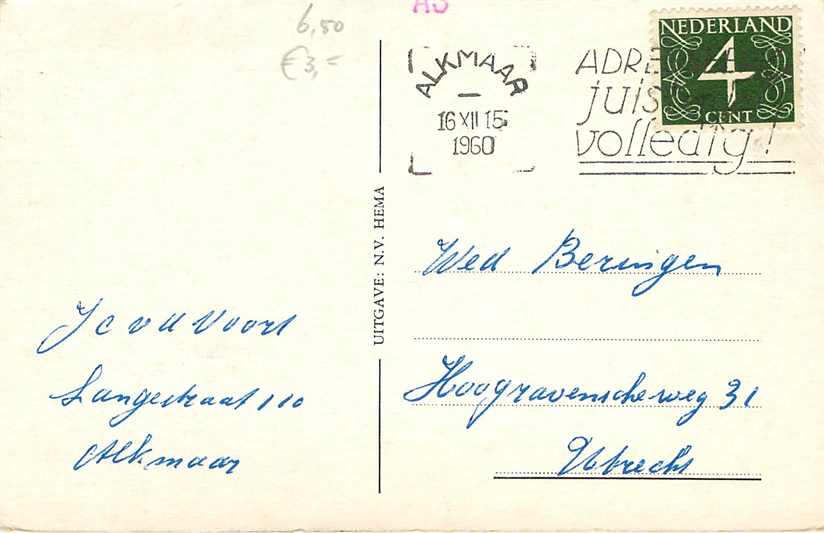 6,50
€ 3,=
AS
NEDERLAND
4
CENT
ALKMAAR
16 XII 15
1960
ADRE
juis
volledig!
UITGAVE: N.V. HEMA
Wed Beringen
Hoogravenscheweg 31
Utrecht
J c v d Voort
Langestraat 110
Alkmaar